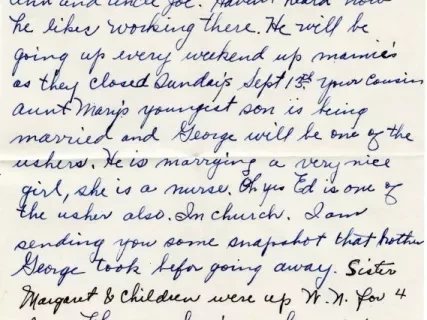 ann and uncle Joe. Haven't heard how
he likes working there. He will be
going up every weekend up mamie's
as they closed Sunday's Sept 13th. Your Cousin
aunt Mary's youngist son is being
married and George will be one of the
ushers. He is marrying a very nice
girl, she is a nurse. Oh yes Ed is one of
the usher also. In church. I am
sending you some snapshot that brother
George took befor going away. Sister
Margaret & Children were up W. N. for 4